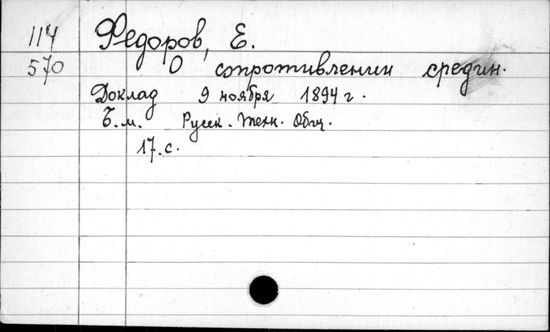 114 Федоров, Е.
570 О сопротивлении средин.
Доклад 9 ноября 1894 г.
Б.м. Русск. Техн. Общ.
17.с.